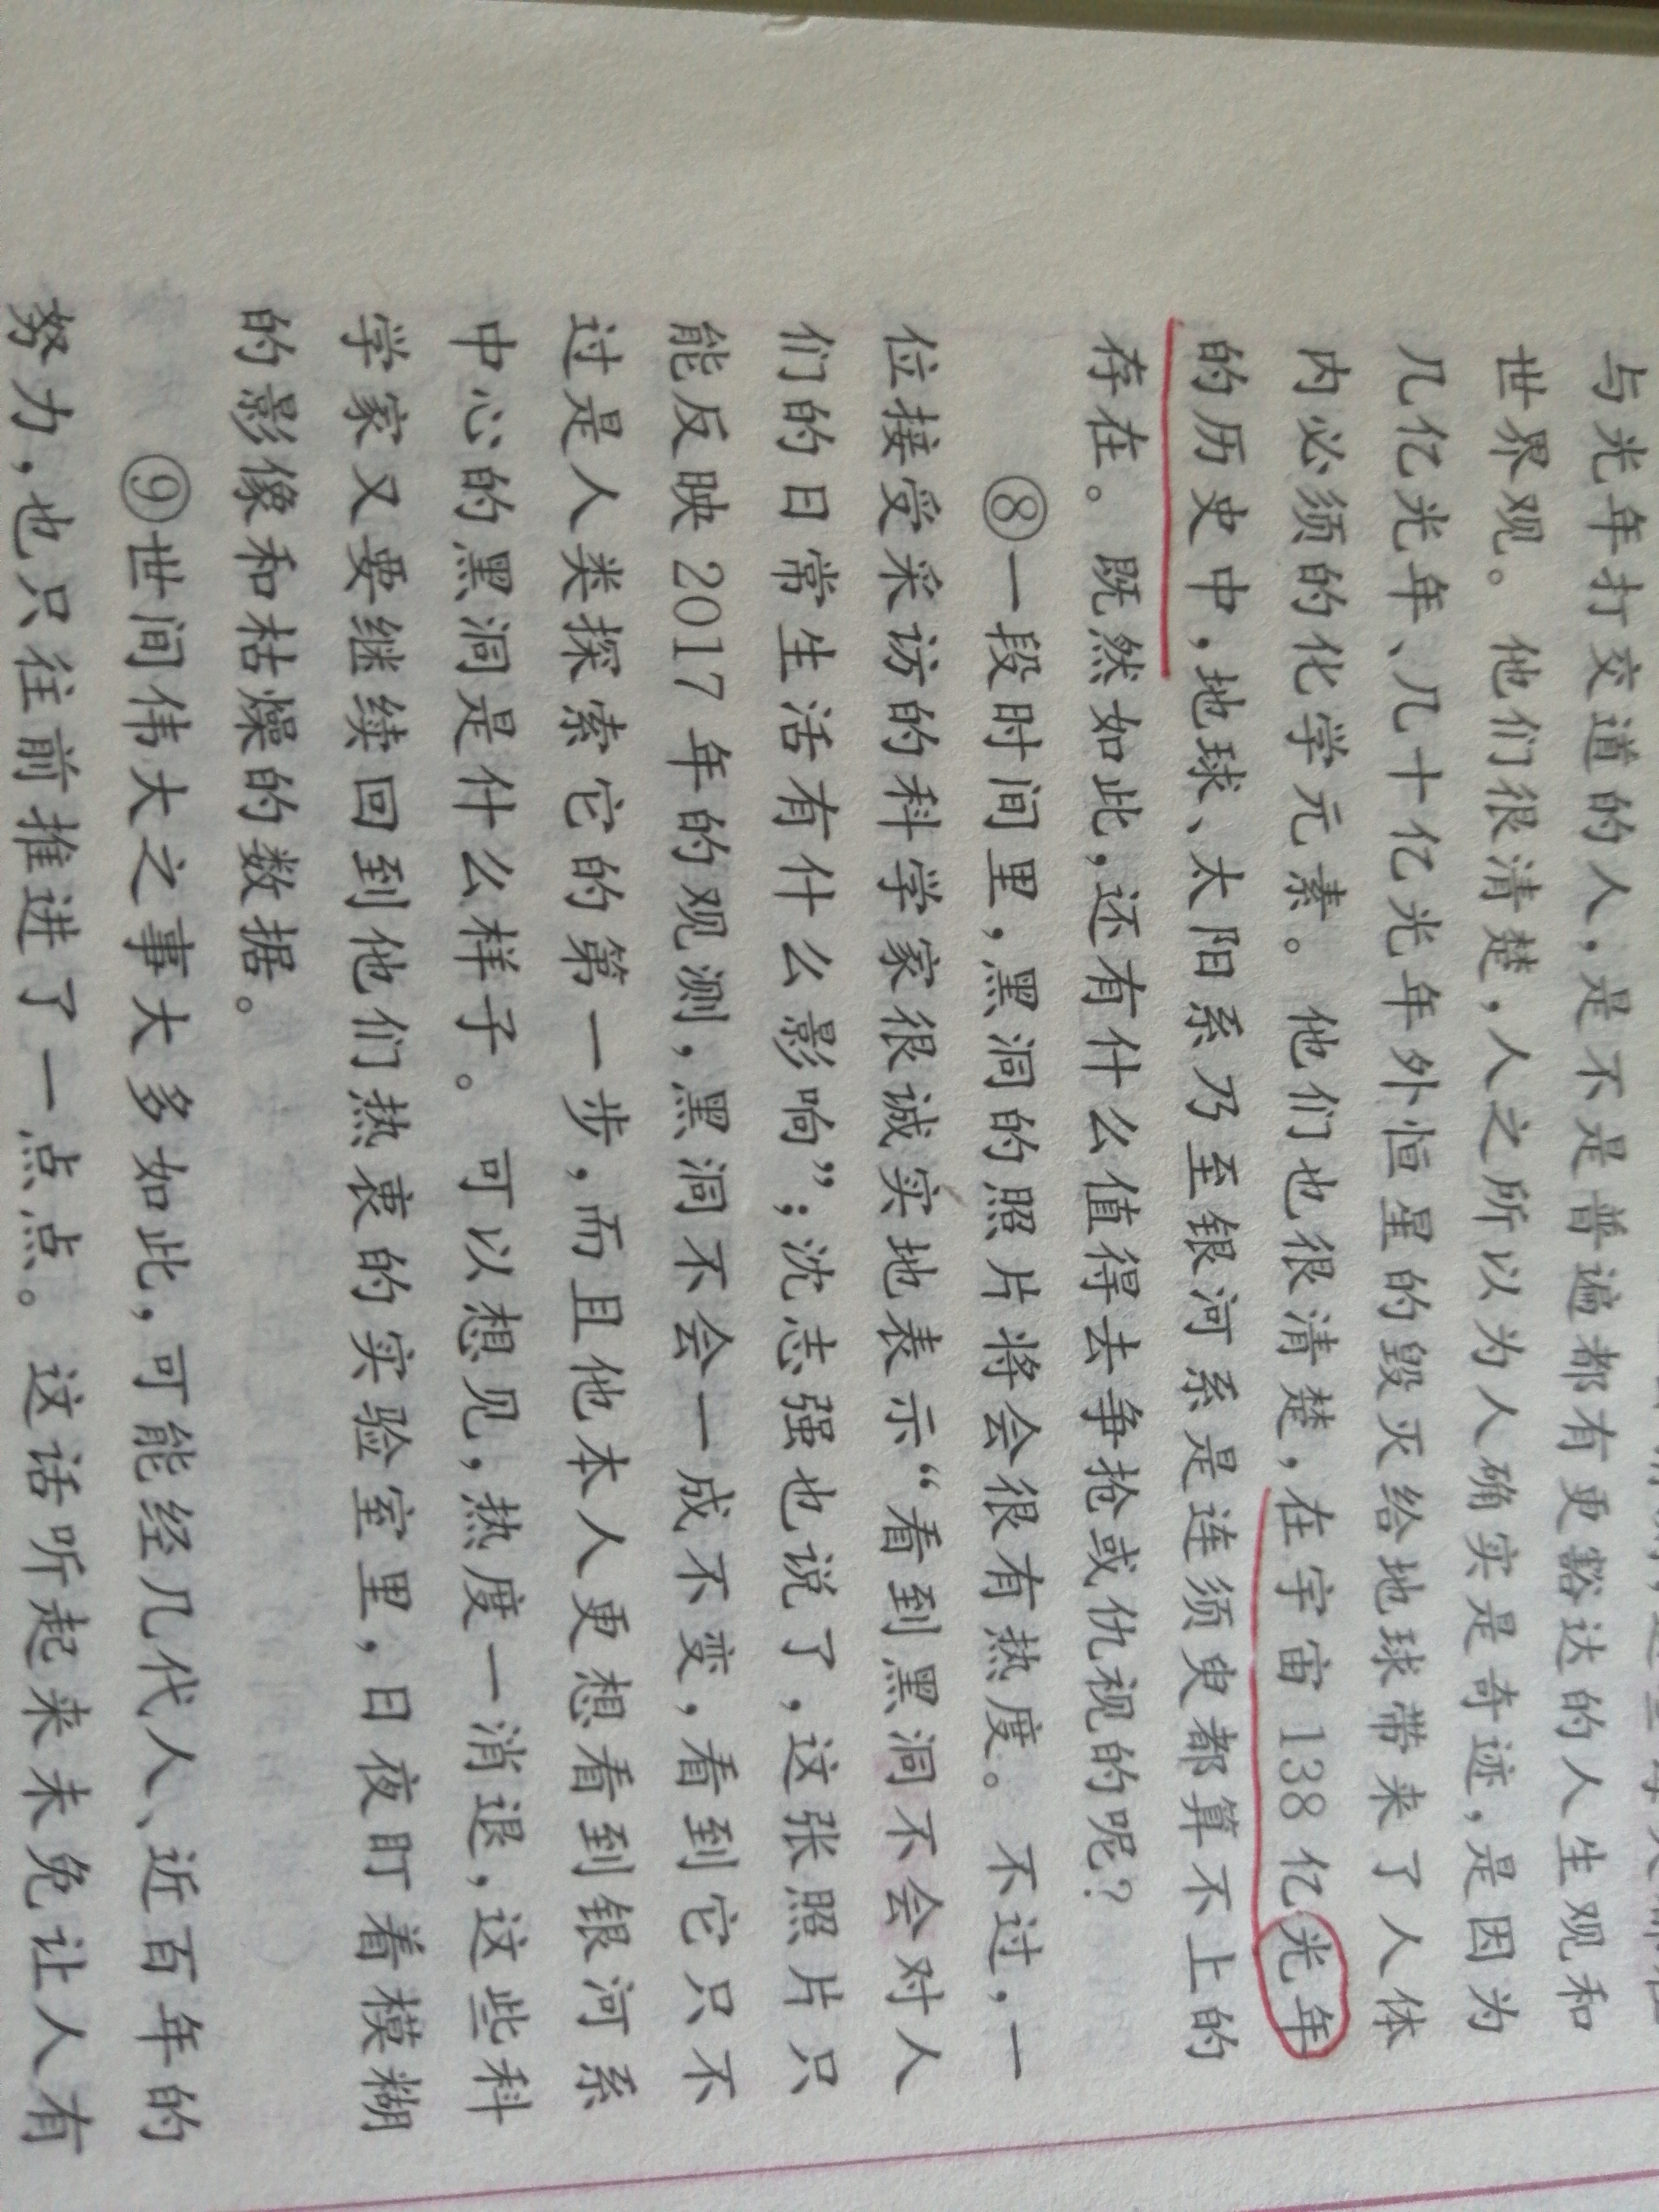 与光年打交道的人，是不是普遍都有更豁达的人生观和
世界观。他们很清楚，人之所以为人确实是奇迹，是因为
几亿光年、几十亿光年外恒星的毁灭给地球带来了人体
内必须的化学元素。他们也很清楚，在宇宙138亿光年
的历史中，地球、太阳系乃至银河系是连须臾都算不上的
存在。既然如此，还有什么值得去争抢或仇视的呢？
⑧一段时间里，黑洞的照片将会很有热度。不过，一
位接受采访的科学家很诚实地表示“看到黑洞不会对人
们的日常生活有什么影响”；沈志强也说了，这张照片只
能反映2017年的观测，黑洞不会一成不变，看到它只不
过是人类探索它的第一步，而且他本人更想看到银河系
中心的黑洞是什么样子。可以想见，热度一消退，这些科
学家又要继续回到他们热衷的实验室里，日夜盯着模糊
的影像和枯燥的数据。
⑨世间伟大之事大多如此，可能经几代人、近百年的
努力，也只往前推进了一点点。这话听起来未免让人有